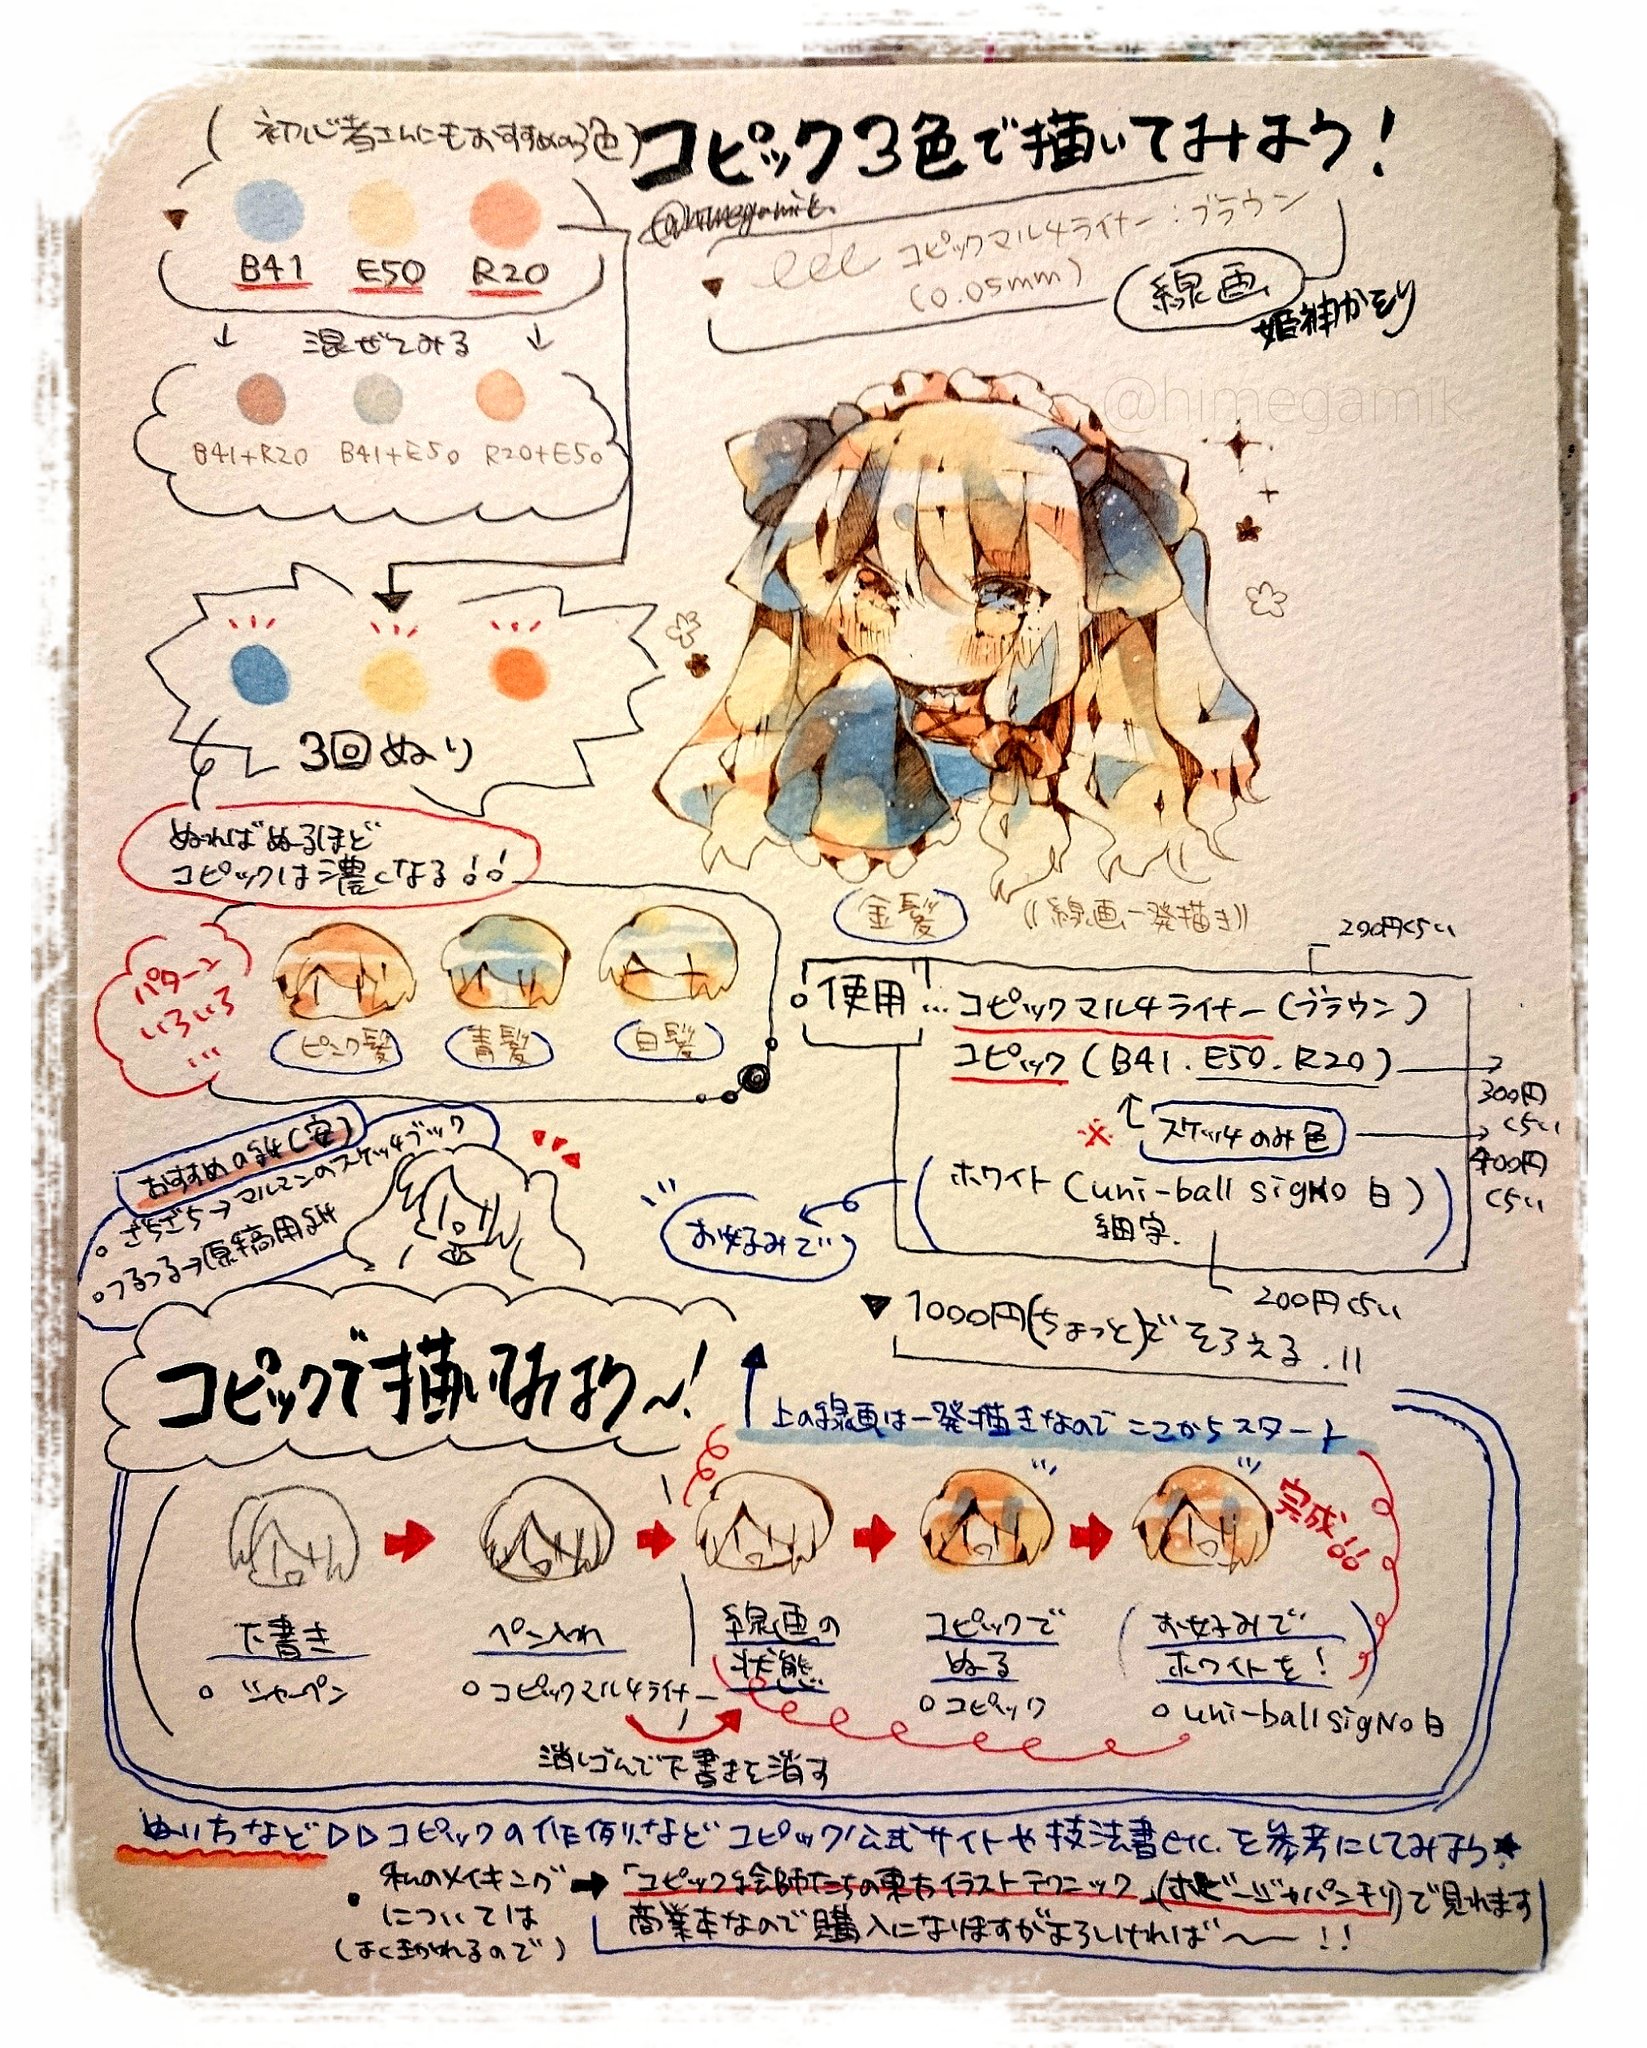 (初心者さんにもおすすめの3色)
コピック3色で描いてみよう!
@himegamik.
B41 E50 R20
コピックマルチライナー:ブラウン
(0.05mm)
線画
姫神かをり
↓ 混ぜてみる ↓
@himegamik
B41+R20 B41+E50 R20+E50
3回ぬり
ぬればぬるほど
コピックは濃くなる!!
金髪
((線画一発描き))
パターン
いろいろ
...
ピンク髪 青髪 白髪
200円くらい
使用...コピックマルチライナー(ブラウン)
コピック(B41.E50.R20)
300円
くらい
※ スケッチのみ色
400円
くらい
(ホワイト(uni-ball sigNo 白)
細字.)
お好みで
200円くらい
▼1000円(ちょっと)でそろえる.!!
おすすめの紙(安)
○ざらざら→マルマンのスケッチブック
○つるつる→原稿用紙
コピックで描いてみよう~!
上の線画は一発描きなのでここからスタート
完成!!
下書き
○シャーペン
ペン入れ
○コピックマルチライナー
線画の
状態
コピックで
ぬる
○コピック
(お好みで
ホワイトを!)
○uni-ball sigNo白
消しゴムで下書きを消す
ぬいちなど▷▷コピックの作例などコピック公式サイトや技法書etc.を参考にしてみよう★
・私のメイキング
については
(よく聞かれるので)
➡「コピック絵師たちの東方イラストテクニック」(ホビージャパンより)で見れます
商業本なので購入になりますがよろしければ~!!